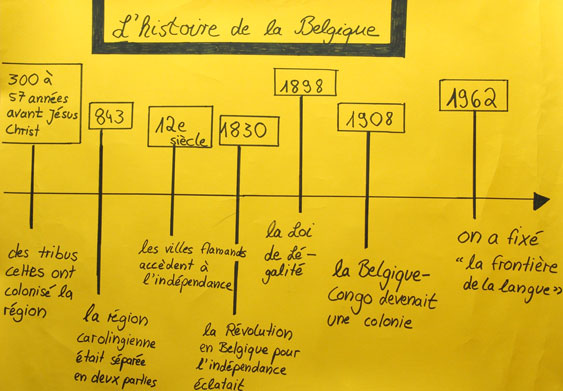 L'histoire de la Belgique
300 à
57 années
avant Jésus
Christ
des tribus
celtes ont
colonisé la
région
843
la région
carolingienne
était séparée
en deux parties
12e
siècle
les villes flamands
accèdent à
l'indépendance
1830
la Révolution
en Belgique pour
l'indépendance
éclatait
1898
la Loi
de L'é-
galité
1908
la Belgique-
Congo devenait
une colonie
1962
on a fixé
"la frontière
de la langue»